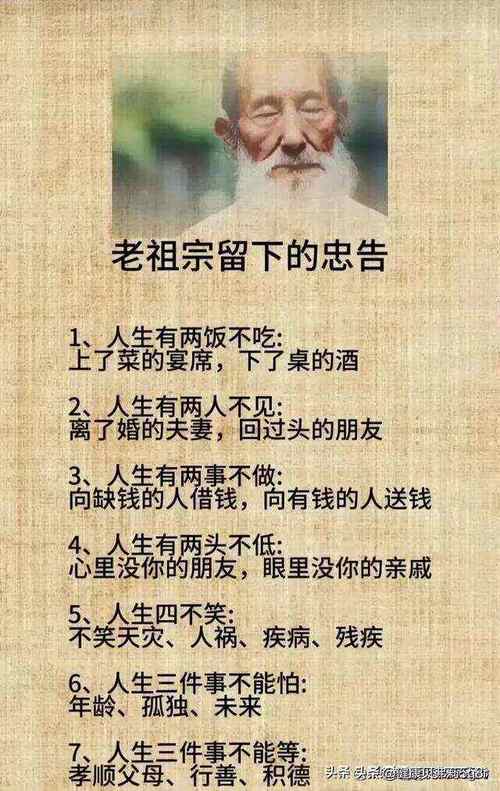 老祖宗留下的忠告
1、人生有两饭不吃:
上了菜的宴席，下了桌的酒
2、人生有两人不见:
离了婚的夫妻，回过头的朋友
3、人生有两事不做:
向缺钱的人借钱，向有钱的人送钱
4、人生有两头不低:
心里没你的朋友，眼里没你的亲戚
5、人生四不笑:
不笑天灾、人祸、疾病、残疾
6、人生三件事不能怕:
年龄、孤独、未来
7、人生三件事不能等:
孝顺父母、行善、积德
头条